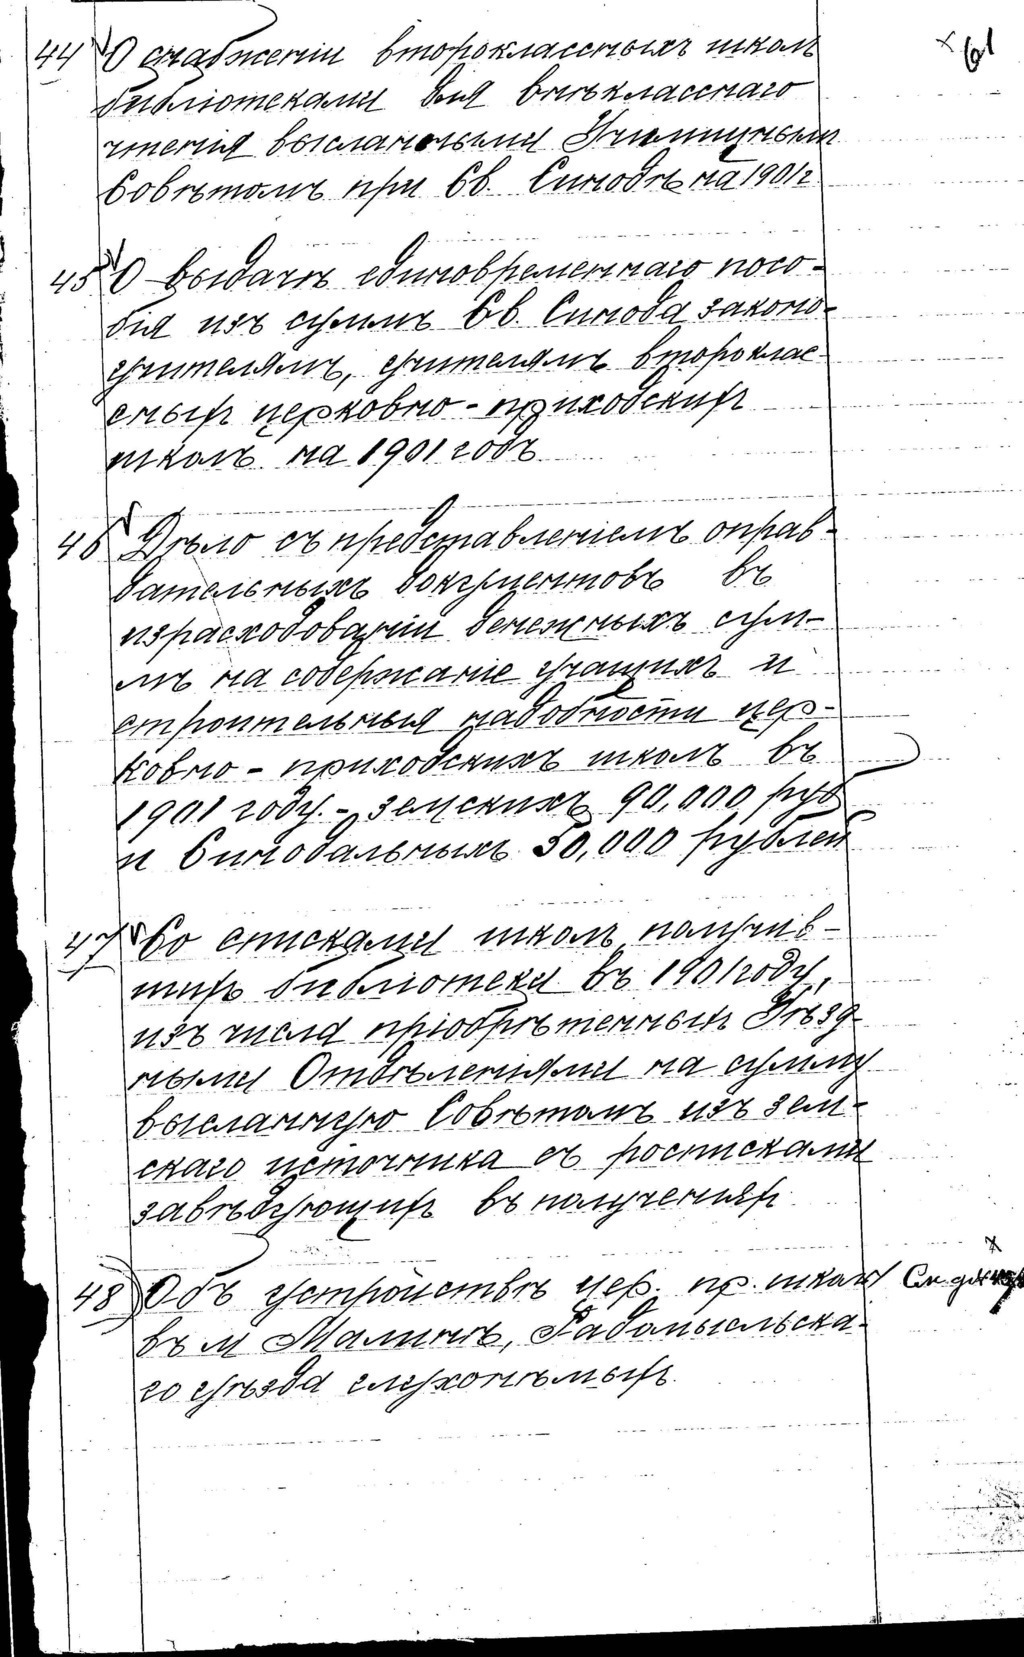 61
44 О снабженіи второклассныхъ школъ
библіотеками для внѣкласснаго
чтенія высланными Училищнымъ
Совѣтомъ при Св. Синодѣ на 1901 г
45 О выдачѣ единовременнаго посо-
бія изъ суммъ Св. Синода законо-
учителямъ, учителямъ второклас-
сныхъ церковно-приходскихъ
школъ на 1901 годъ
46 Дѣло съ представленіемъ оправ-
дательныхъ документовъ въ
израсходованіи денежныхъ сум-
мъ на содержаніе учащихъ и
строительныя надобности цер-
ковно-приходскихъ школъ въ
1901 году.- земскихъ 90,000 руб
и Синодальныхъ 50,000 рублей
47 Со списками школъ, получив-
шихъ библіотеки въ 1901 году,
изъ числа пріобрѣтенныхъ Уѣзд-
ными Отдѣленіями на сумму
высланную Совѣтомъ изъ зем-
скаго источника съ росписками
завѣдующихъ въ полученіяхъ
48 Объ устройствѣ цер. пр. школы
въ м Малинѣ, Радомысльска-
го уѣзда глухонѣмыхъ.